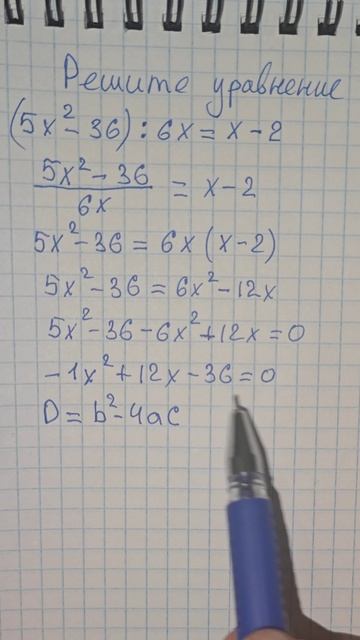 Решите уравнение
(5x² - 36) : 6x = x - 2
5x² - 36 / 6x = x - 2
5x² - 36 = 6x (x - 2)
5x² - 36 = 6x² - 12x
5x² - 36 - 6x² + 12x = 0
- 1x² + 12x - 36 = 0
D = b² - 4ac